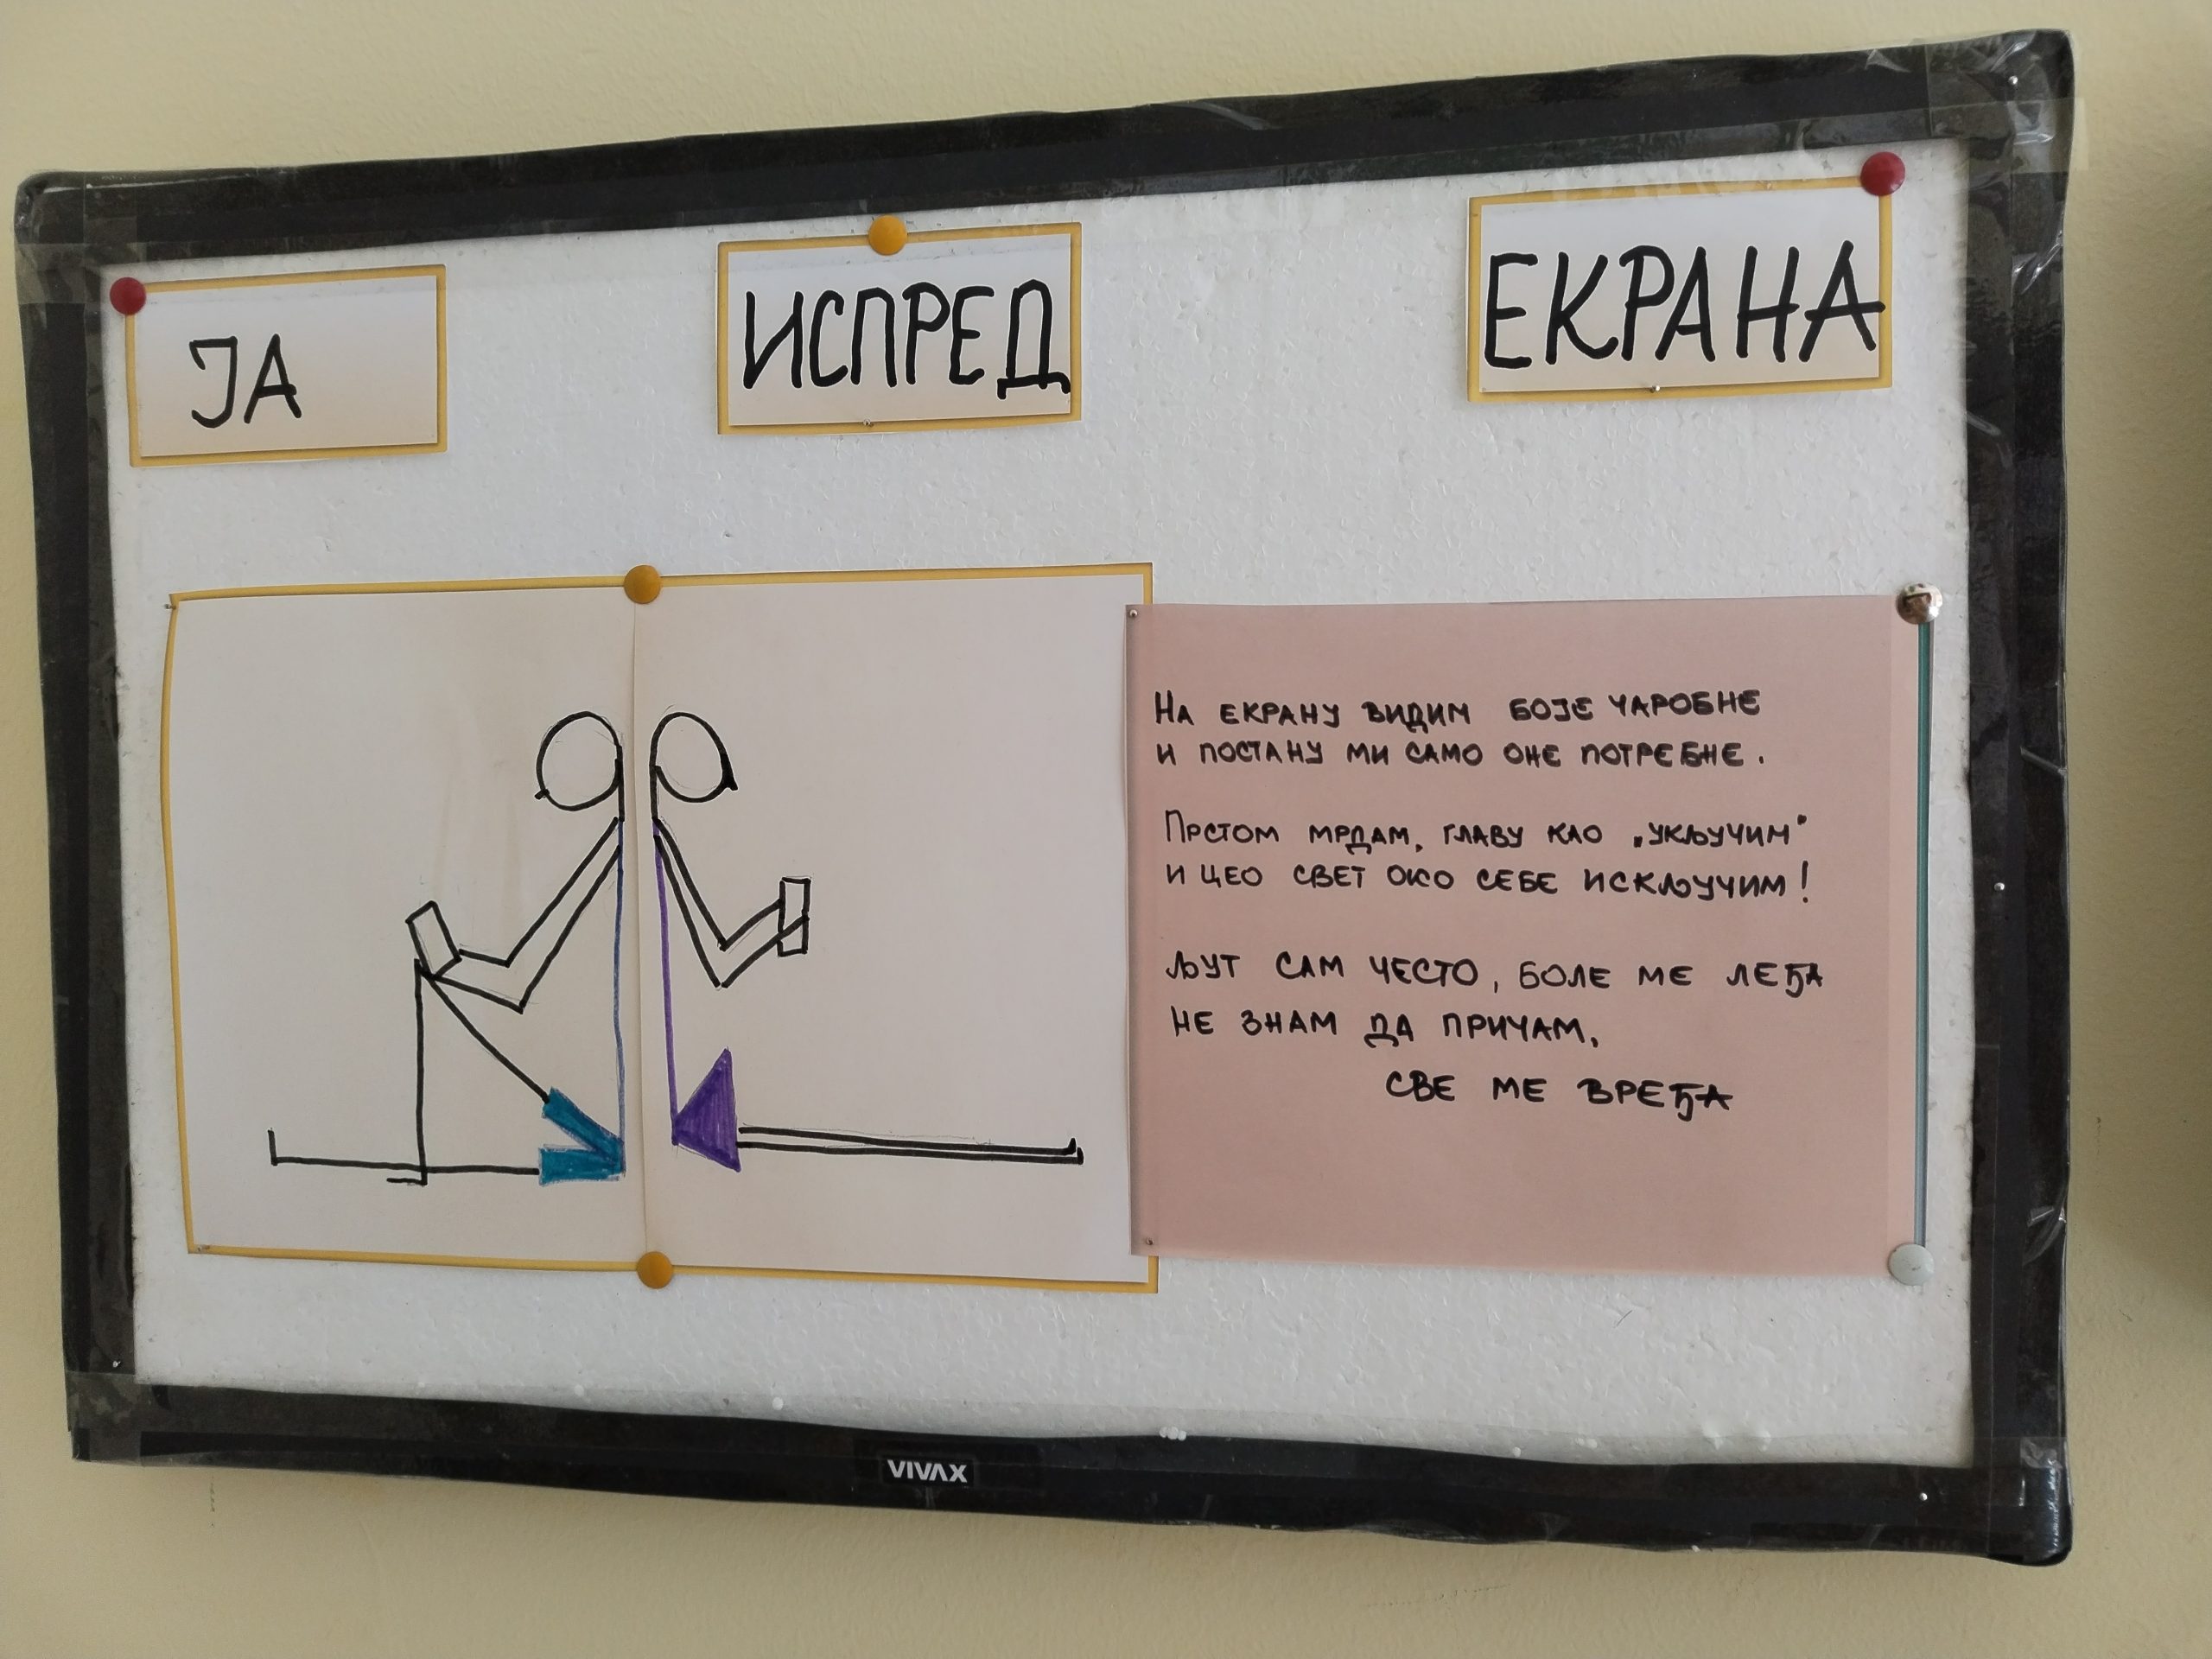 ЈА
ИСПРЕД
ЕКРАНА
НА ЕКРАНУ ВИДИМ БОЈЕ ЧАРОБНЕ
И ПОСТАНУ МИ САМО ОНЕ ПОТРЕБНЕ.
ПРСТОМ МРДАМ, ГЛАВУ КАО „УКЉУЧИМ"
И ЦЕО СВЕТ ОКО СЕБЕ ИСКЉУЧИМ!
ЉУТ САМ ЧЕСТО, БОЛЕ МЕ ЛЕЂА
НЕ ЗНАМ ДА ПРИЧАМ,
СВЕ МЕ ВРЕЂА
VIVAX